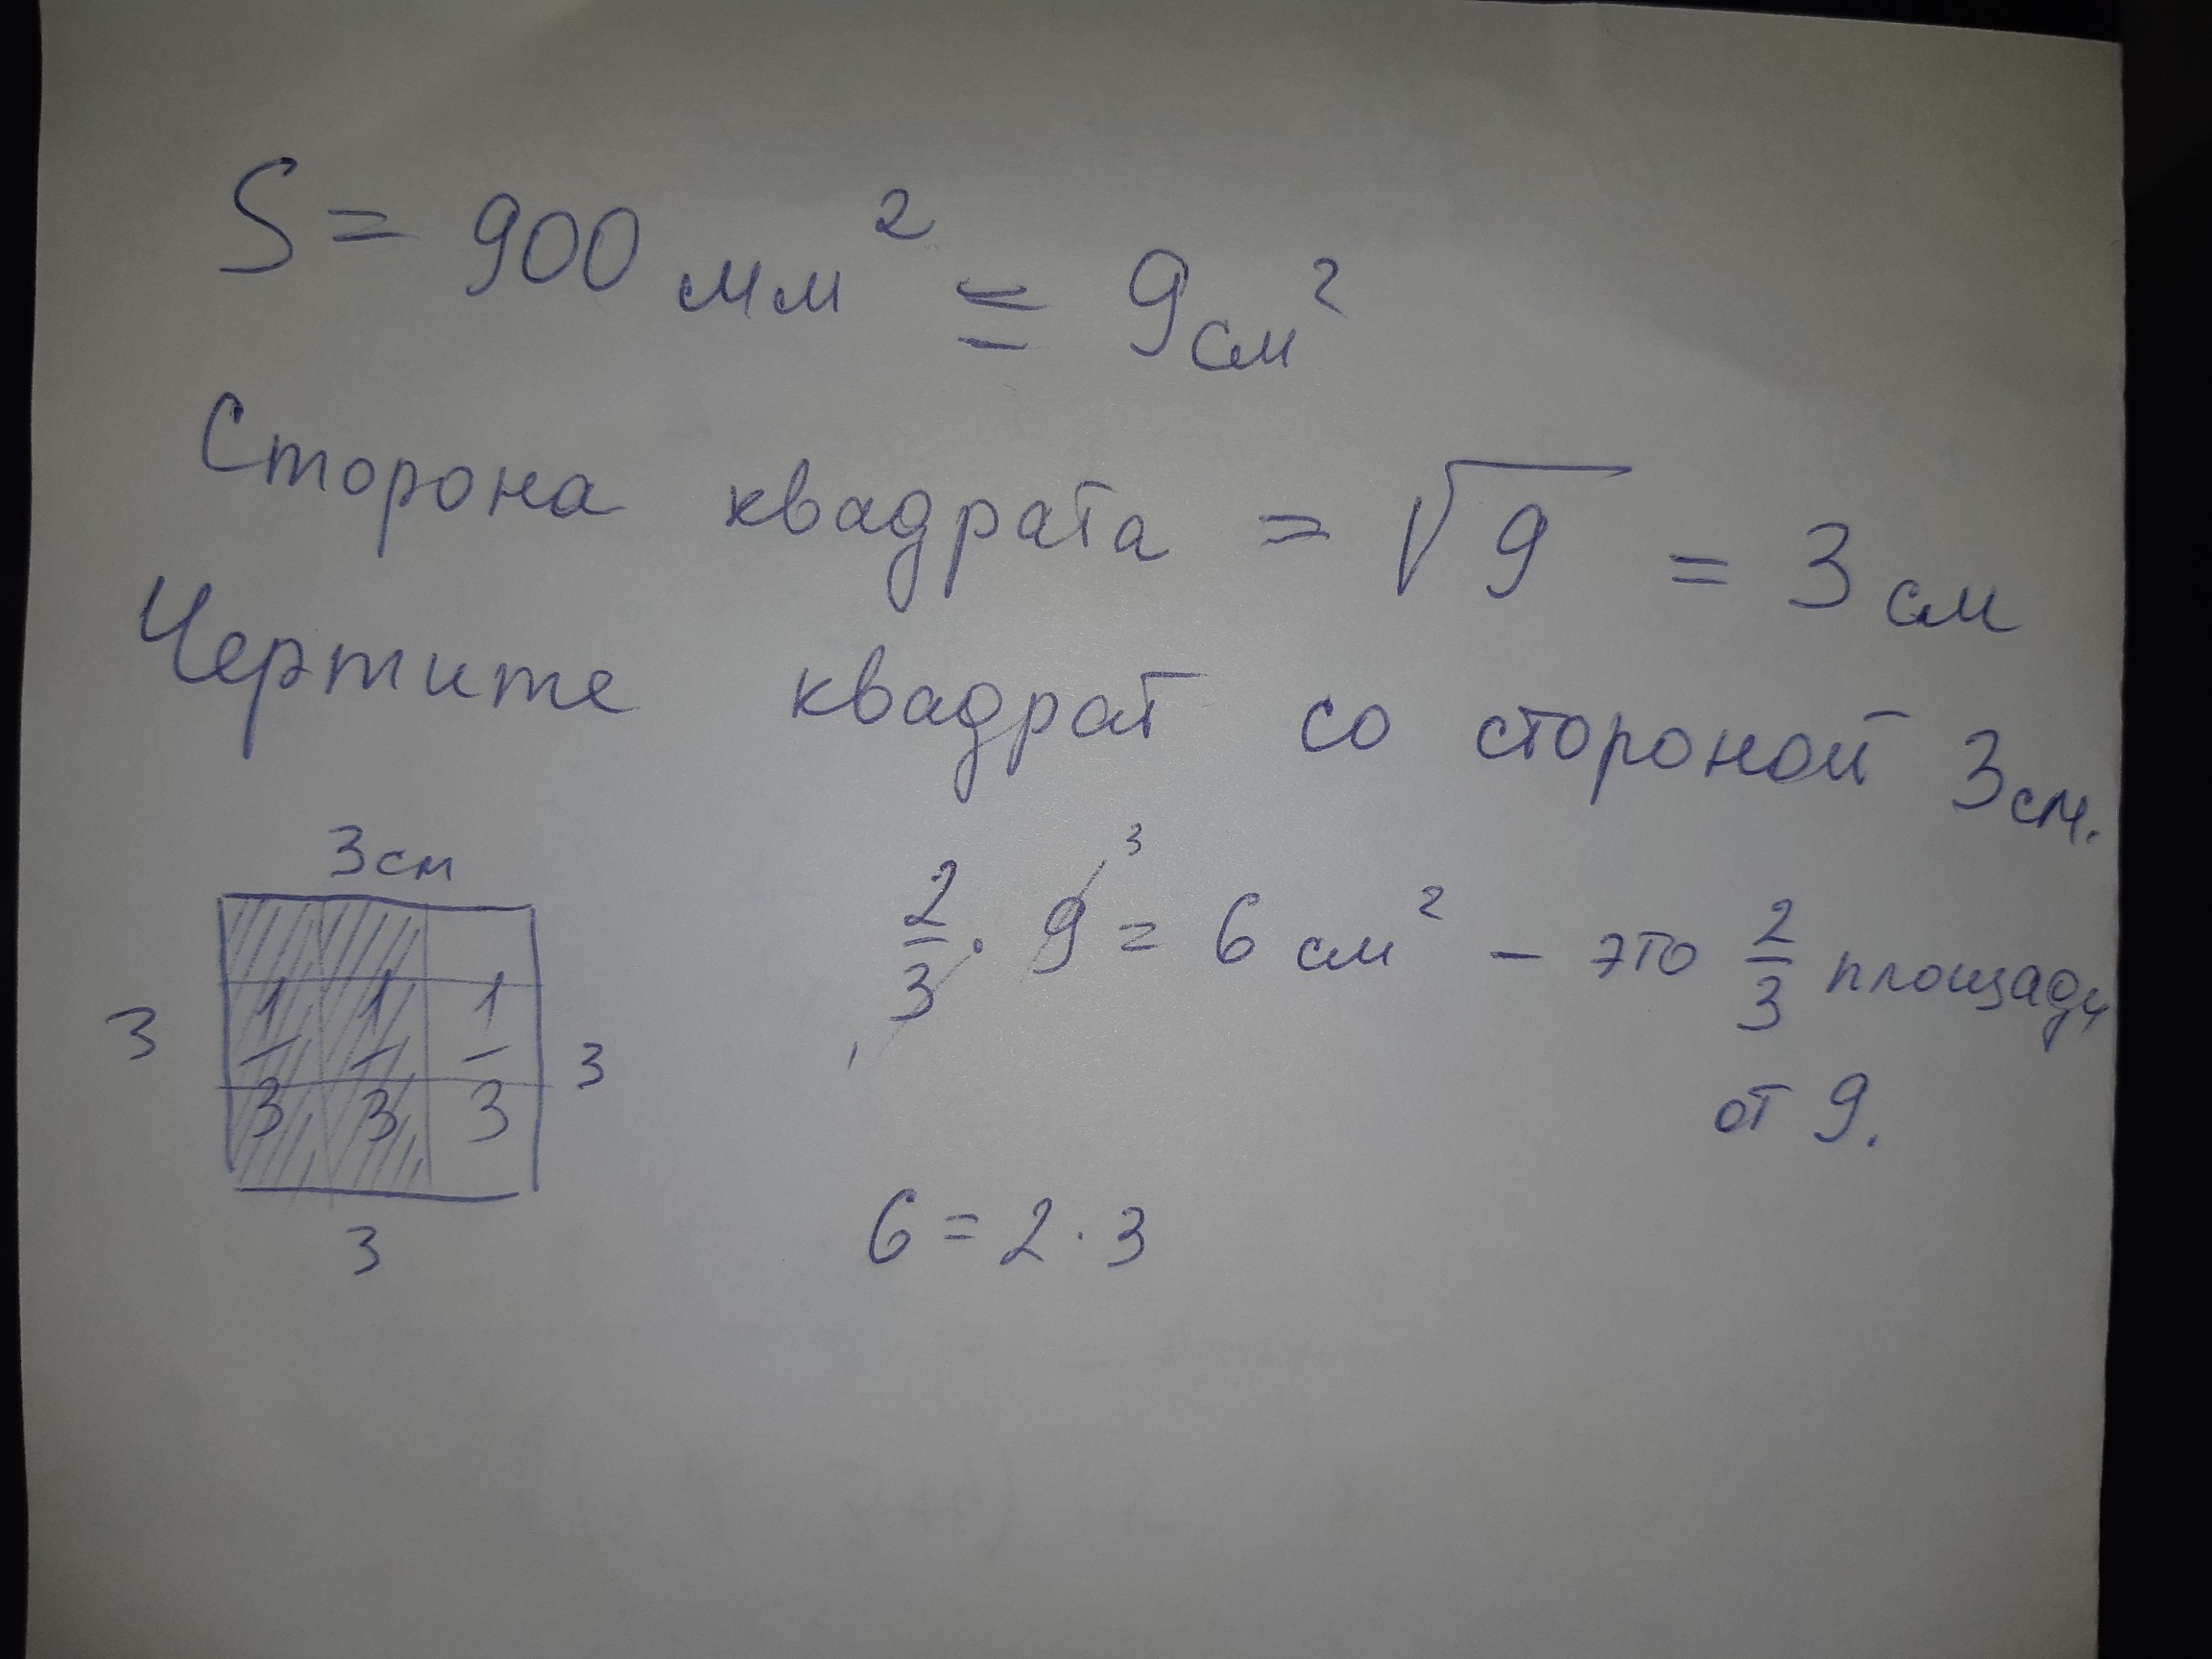 S = 900 мм² = 9 см²
Сторона квадрата = √9 = 3 см
Чертите квадрат со стороной 3 см.
3 см
3
1/3 1/3 1/3
3
3
2/3 · 9 3 = 6 см² – это 2/3 площади
1
от 9.
6 = 2 · 3